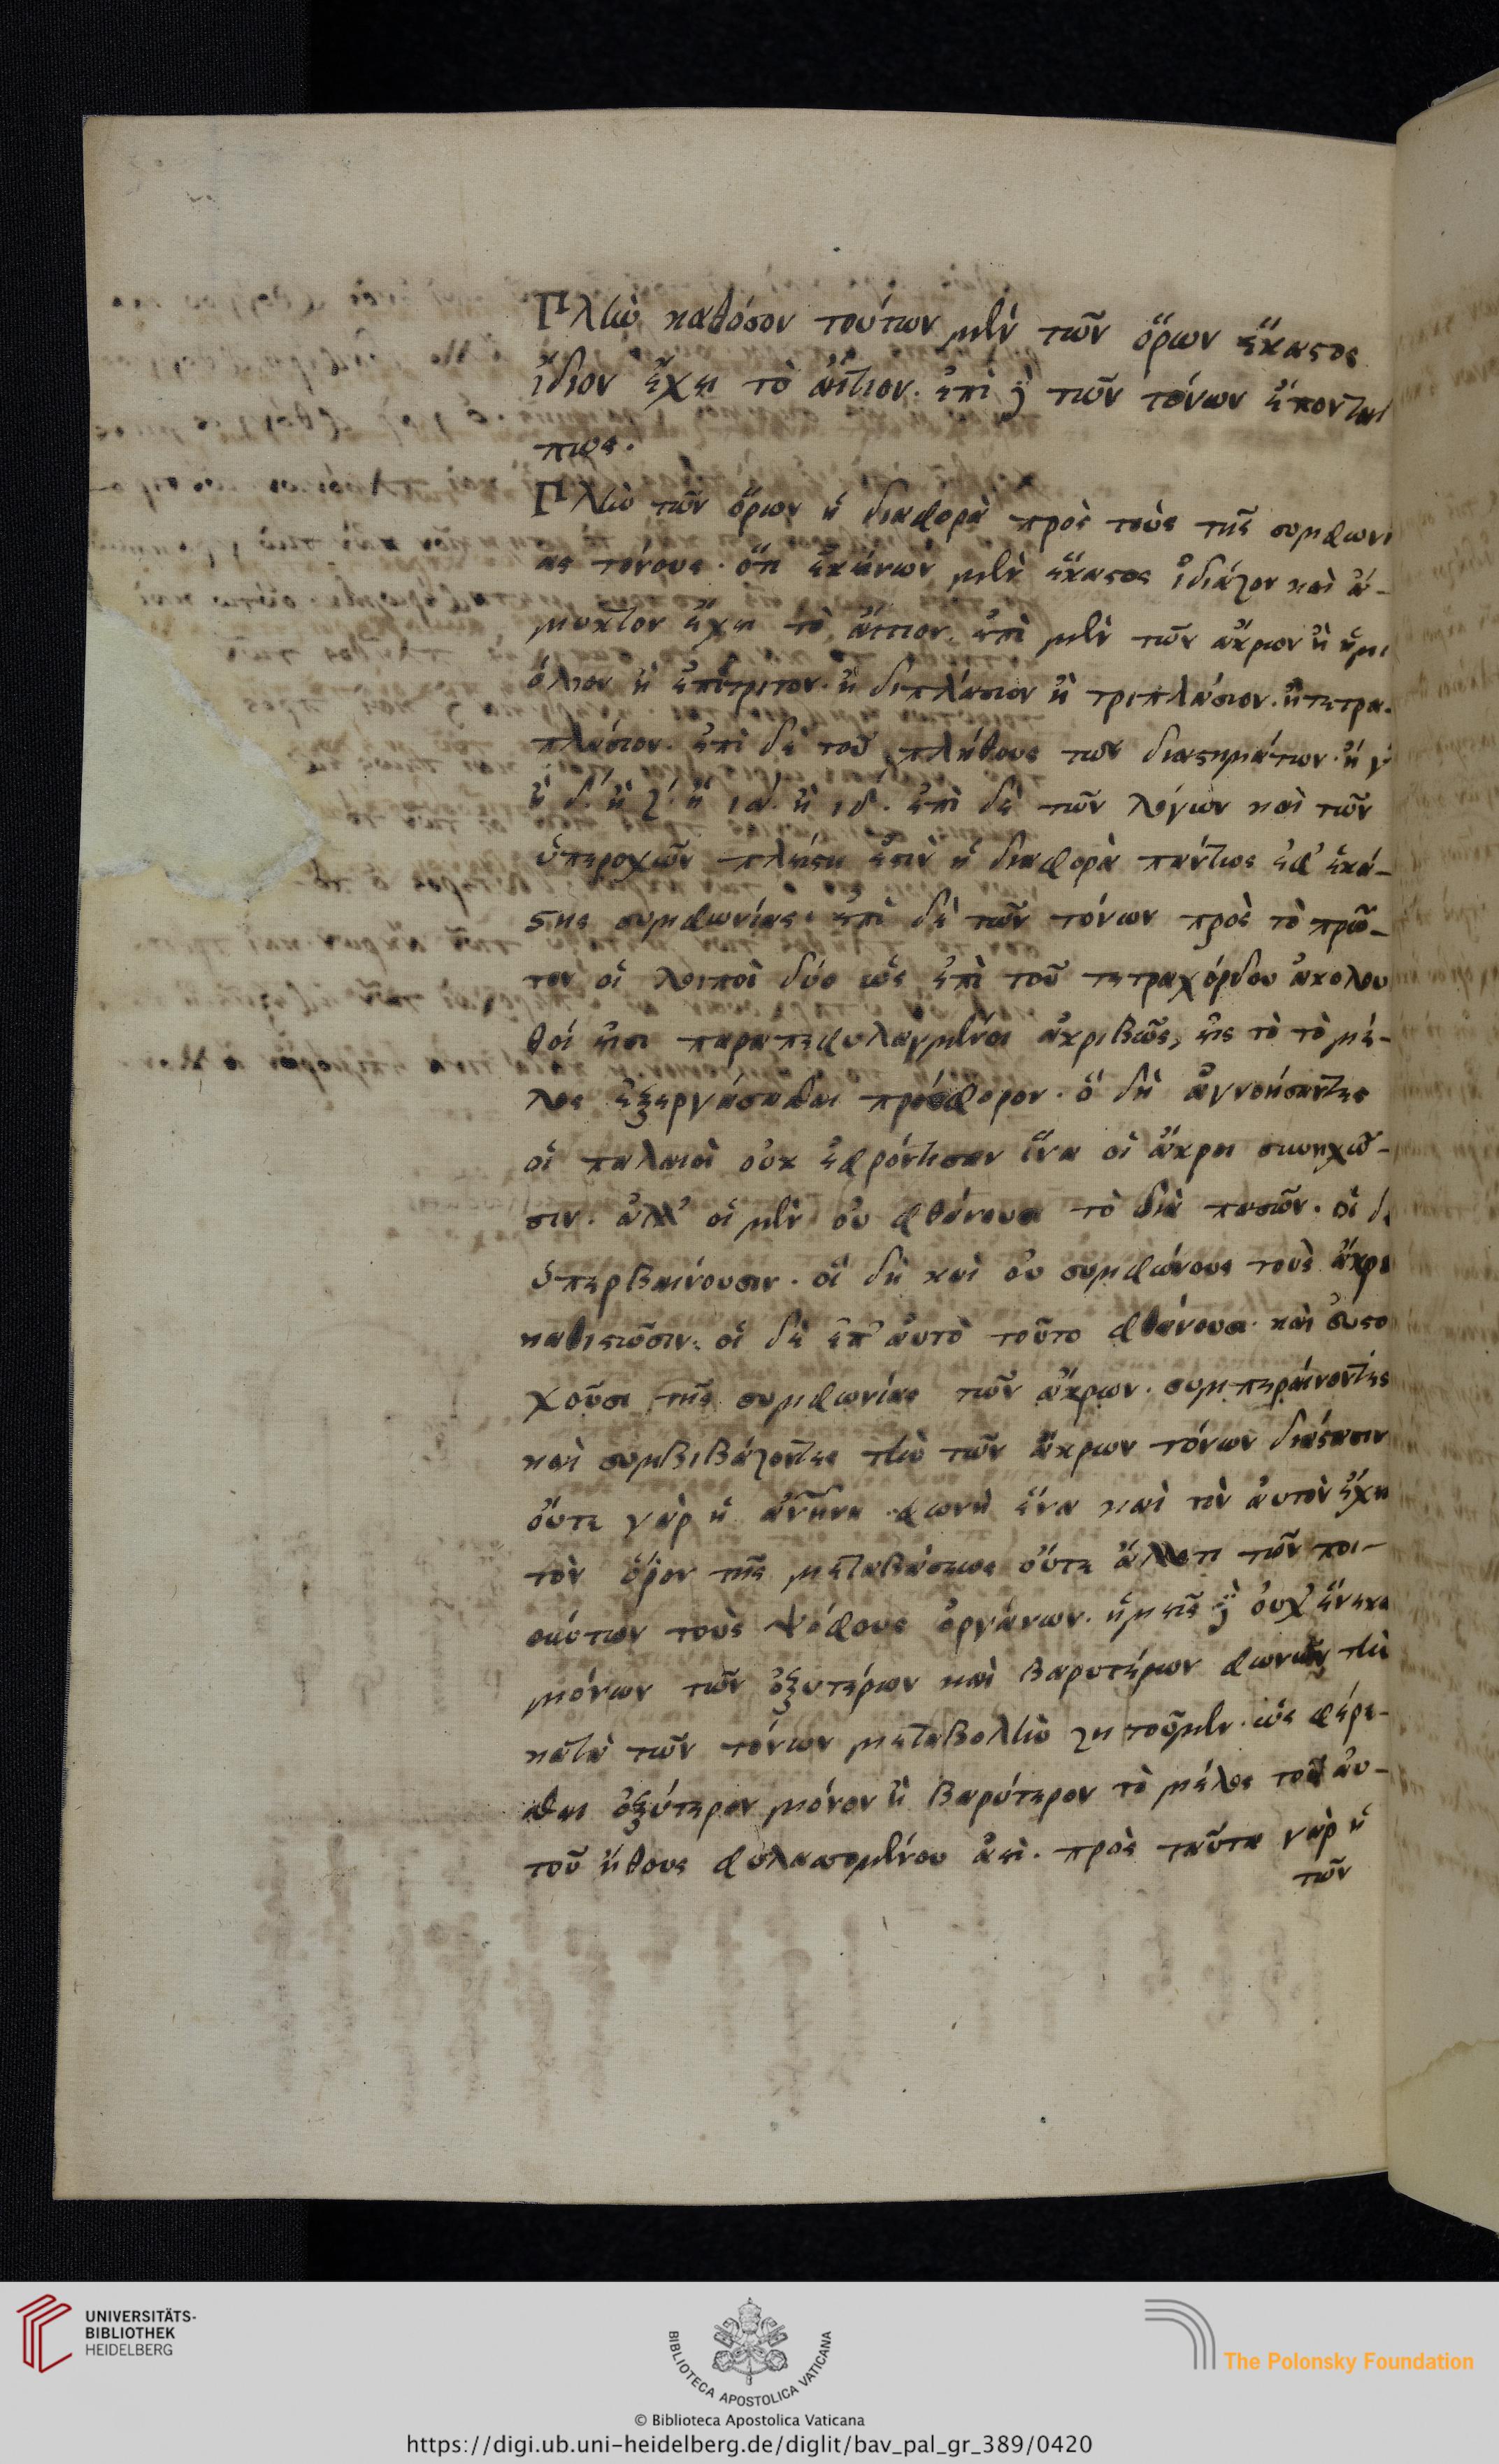 Πλὴν καθόσον τούτων μὲν τῶν ὅρων ἕκαστος
ἴδιον ἔχει τὸ αἴτιον. ἐπὶ δὲ τῶν τόνων ἕπονται
πως.
Πλὴν τῶν ὅρων ἡ διαφορὰ πρὸς τοὺς τῆς συμφωνί
ας τόνους. ὅτι ἐκείνων μὲν ἕκαστος ἰδιάζον καὶ ἄ-
μικτον ἔχει τὸ αἴτιον. ἐπὶ μὲν τῶν ἄκρων ἢ ἡμι
όλιον ἢ ἐπίτριτον. ἢ διπλάσιον ἢ τριπλάσιον. ἢ τετρα-
πλάσιον. ἐπὶ δὲ τοῦ πλήθους τῶν διαστημάτων. ἢ γ
ἢ δ. ἢ ζ. ἢ ια. ἢ ιδ. ἐπὶ δὲ τῶν λόγων καὶ τῶν
ὑπεροχῶν πλείστη ἐστὶν ἡ διαφορὰ πάντως ἐφ' ἑκά-
στης συμφωνίας. ἐπὶ δὲ τῶν τόνων πρὸς τὸ πρῶ-
τον οἱ λοιποὶ δύο ὡς ἐπὶ τοῦ τετραχόρδου ἀκόλου
θοί εἰσι παραπεφυλαγμένοι ἀκριβῶς, εἰς τὸ τὸ μέ-
λος ἐξεργάσασθαι πρόσφορον. ὃ δὴ ἀγνοήσαντες
οἱ παλαιοὶ οὐκ ἐφρόντισαν ἵνα οἱ ἄκροι συνηχῶ-
σιν. ἀλλ' οἱ μὲν οὐ φθάνουσι τὸ διὰ πασῶν. οἱ δὲ
ὑπερβαίνουσιν. οἳ δὴ καὶ οὐ συμφώνους τοὺς ἄκρ
καθιστῶσιν. οἱ δὲ ἐπ' αὐτὸ τοῦτο φθάνουσι. καὶ εὐστο
χοῦσι τῆς συμφωνίας τῶν ἄκρων. συμπεραίνοντες
καὶ συμβιβάζοντες τὴν τῶν ἄκρων τόνων διάστασιν
οὔτε γὰρ ἡ φωνὴ ἕνα καὶ τὸν αὐτὸν ἔχει
τὸν ὅρον τῆς μεταβάσεως οὔτε ἄλλο τι τῶν ποι-
ούντων τοὺς ψόφους ὀργάνων. ἡμεῖς δὲ οὐχ ἕνεκα
μόνων τῶν ὀξυτέρων καὶ βαρυτέρων φωνῶν τὴν
κατὰ τῶν τόνων μεταβολὴν ζητοῦμεν. ὡς φέρε-
σθαι ὀξύτερον μόνον ἢ βαρύτερον τὸ μέλος τοῦ αὐ-
τοῦ ἤθους φυλασσομένου ἀεί. πρὸς ταῦτα γὰρ ἡ
τῶν
UNIVERSITÄTS-
BIBLIOTHEK
HEIDELBERG
BIBLIOTECA APOSTOLICA VATICANA
The Polonsky Foundation
© Biblioteca Apostolica Vaticana
https://digi.ub.uni-heidelberg.de/diglit/bav_pal_gr_389/0420